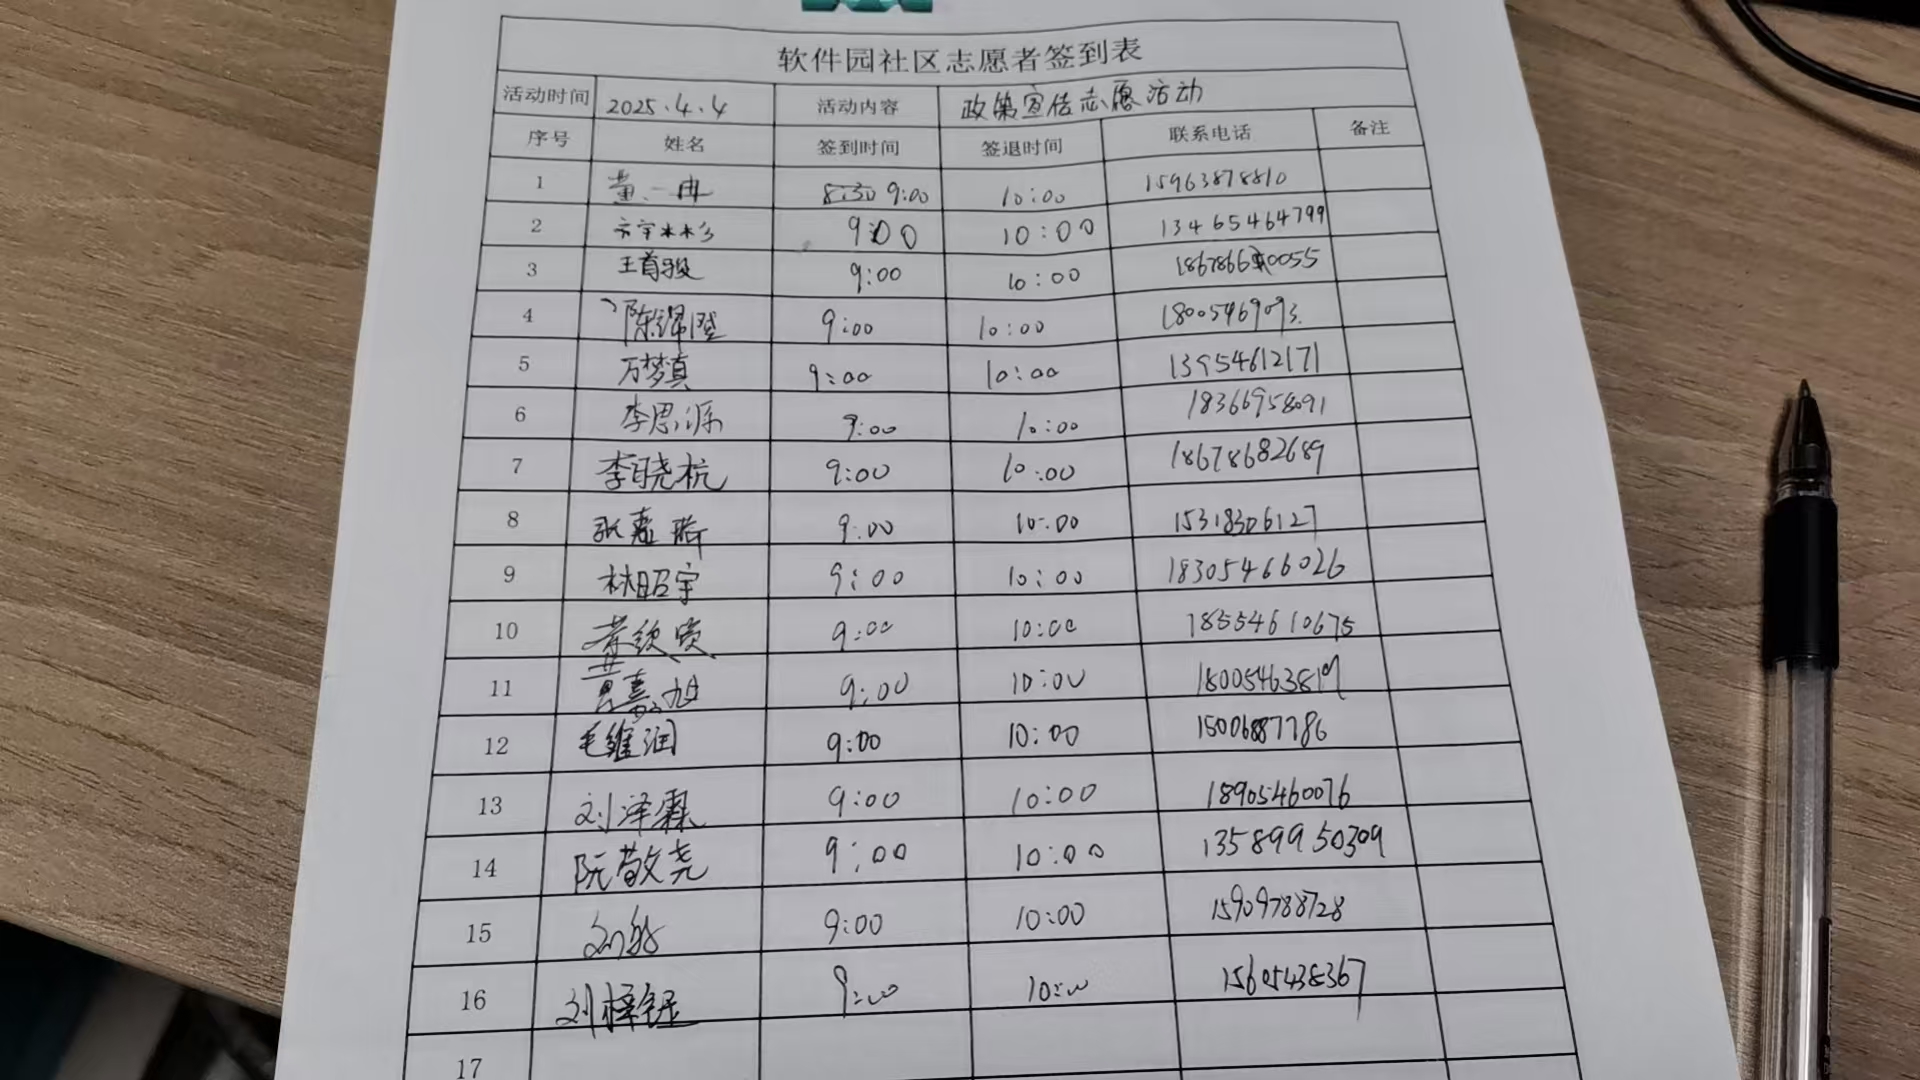 软件园社区志愿者签到表
活动时间 2025.4.4 活动内容 政策宣传志愿活动
序号 姓名 签到时间 签退时间 联系电话 备注
1 黄一冉 8:30 9:00 10:00 15963878810
2 9:00 10:00 13465464799
3 王首骏 9:00 10:00 1867866 0055
4 陈绵陞 9:00 10:00 18005469093
5 万梦真 9:00 10:00 13954612171
6 李思源 9:00 10:00 18366958091
7 李晓杭 9:00 10:00 18678682689
8 张嘉 9:00 10:00 15318306127
9 林昭宇 9:00 10:00 18305466026
10 9:00 10:00 18554610675
11 黄嘉旭 9:00 10:00
12 毛维润 9:00 10:00 15006887786
13 刘泽霖 9:00 10:00 18905460076
14 阮敬尧 9:00 10:00 13589950309
15 刘 9:00 10:00 15909788728
16 刘梓钰 9:00 10:00 15605438367
17